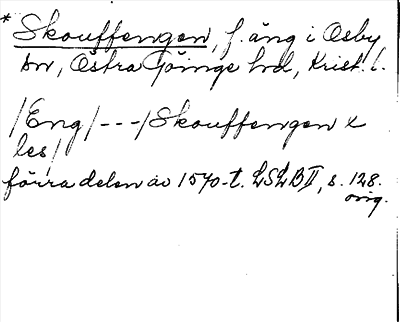 * Skouffengen, f. äng i Osby
sn, Östra Göinge hd, Krist. l.
/Eng/---/Skouffengen x
les/
förra delen av 1570-t. LSLB II, s. 128.
orig.